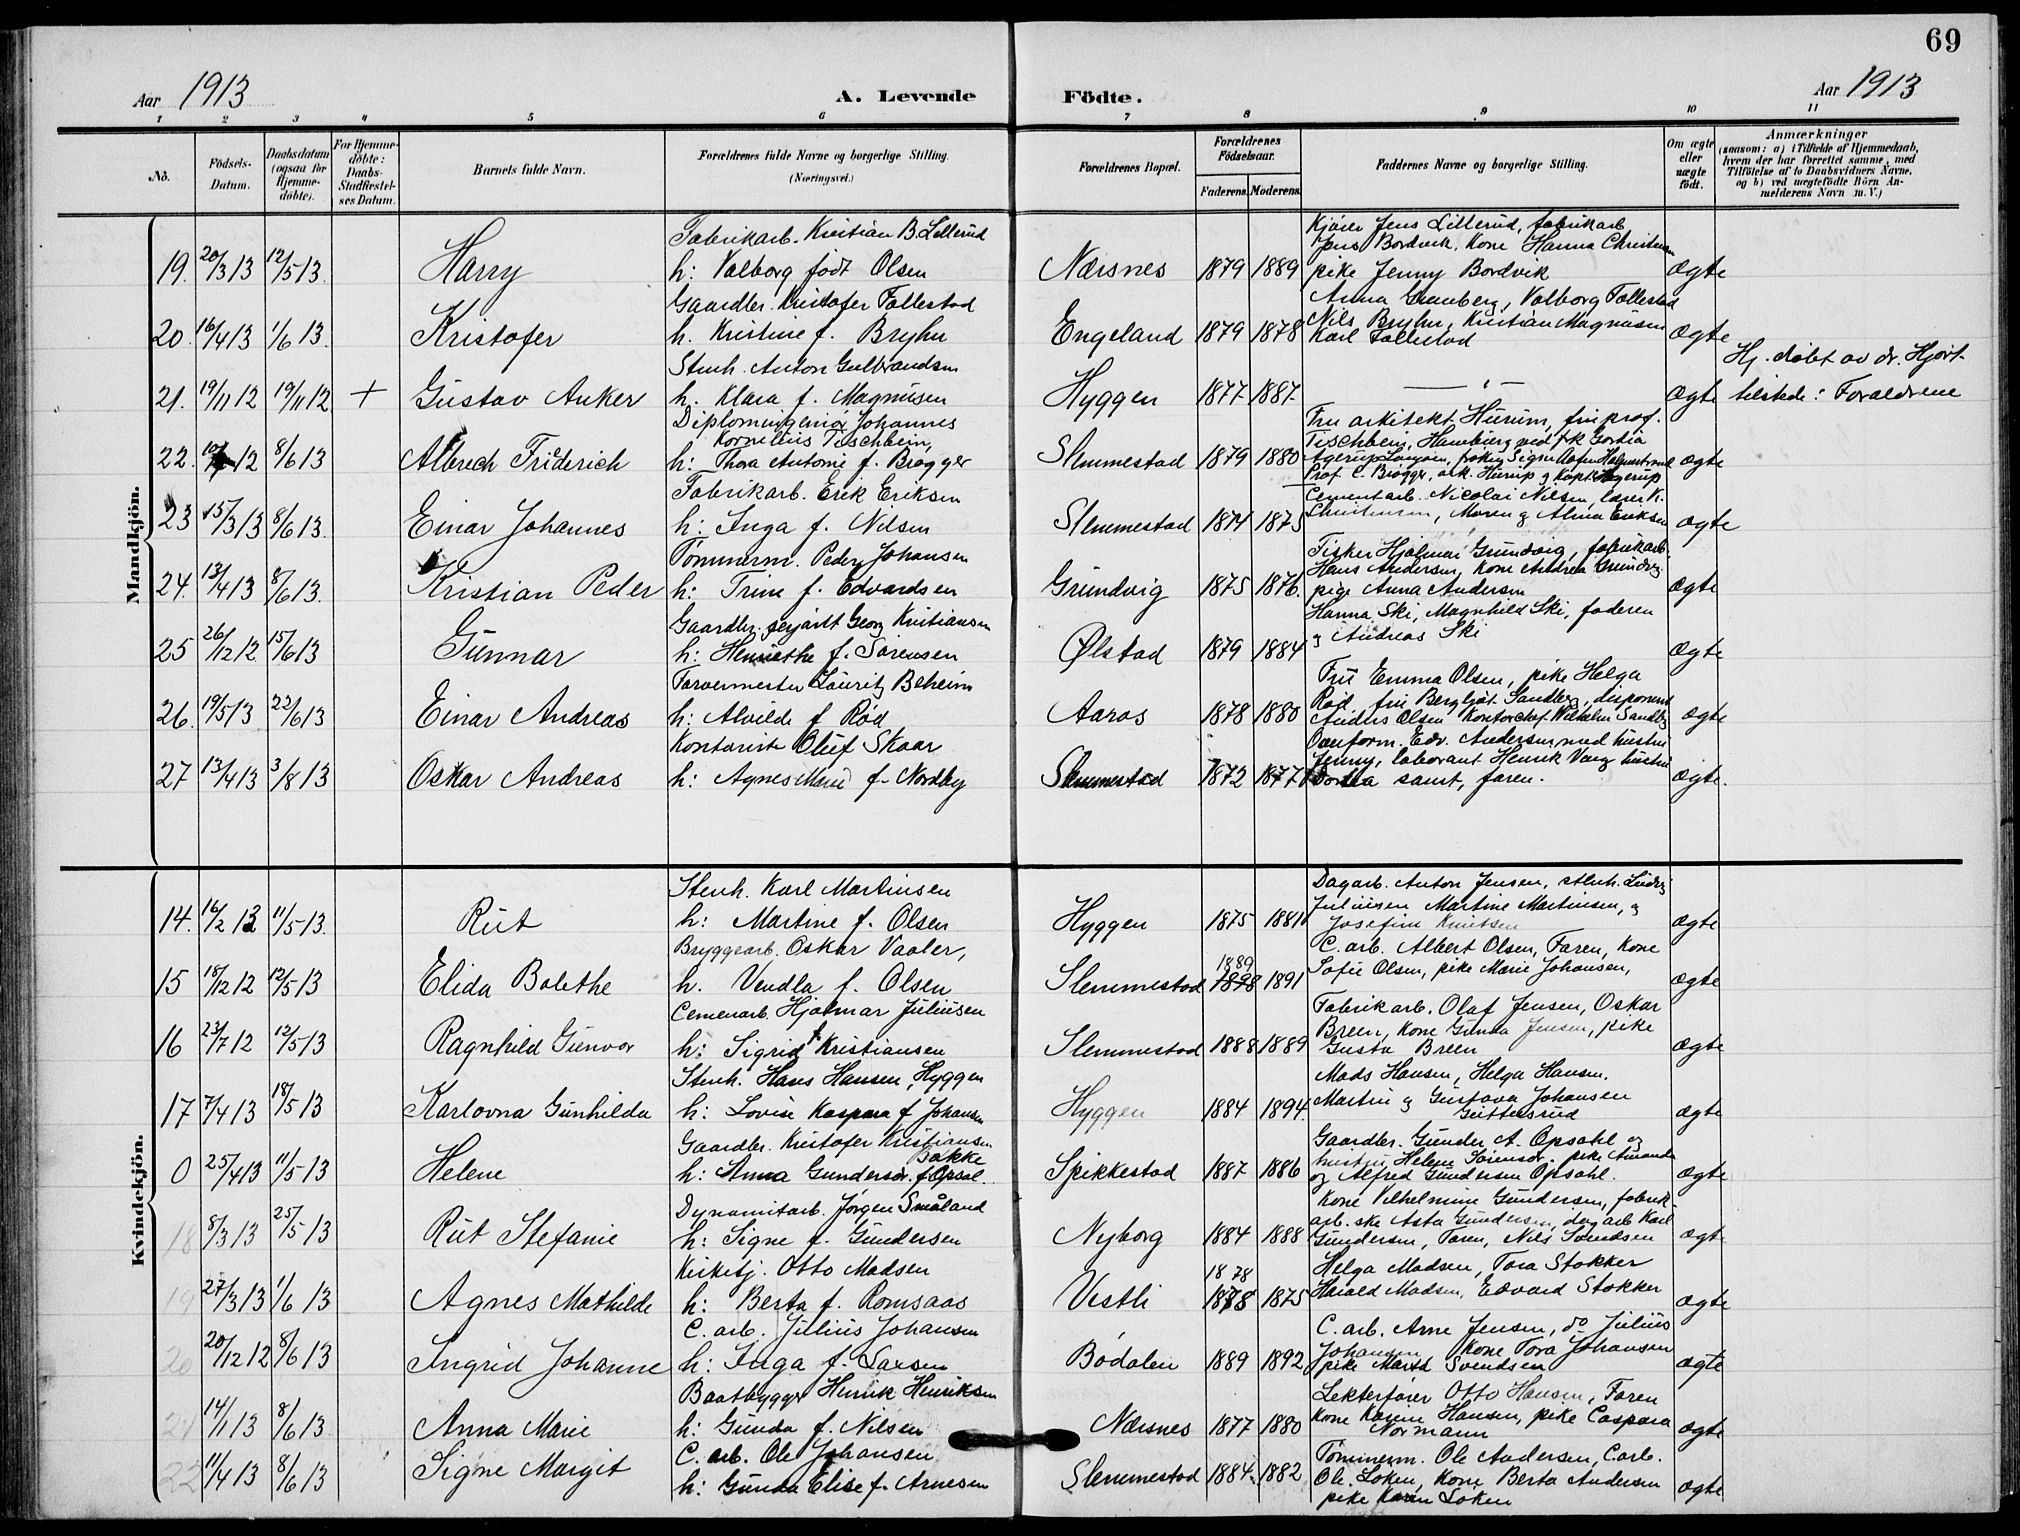 69
Aar 1913
A. Levende
Födte.
Aar 1913
1 2 3 4 5 6 7 8 9 10 11
No.
Födsels-Datum.
Daabsdatum (ogsaa for Hjemme-döbte).
For Hjemme-döbte: Daabs-Stadfæstel-ses Datum.
Barnets fulde Navn.
Forældrenes fulde Navne og borgerlige Stilling. (Næringsvei.)
Forældrenes Bopæl.
Forældrenes Födselsaar.
Faderens. Moderens.
Faddernes Navne og borgerlige Stilling.
Om ægte eller uægte födt.
Anmærkninger
(saasom: a) i Tilfælde af Hjemmedaab,
hvem der har forrettet samme, med
Tilföielse af to Daabsvidners Navne,
og b) ved uægtefödte Börn An-
melderens Navn m. V.)
Mandkjön.
Fabrikarb. Kristian B. Lillerud
Kjører Jens Lillerud, fabrikarb
Jens Bordvik, Kone Hanna Christensen
19. 20/3 13 12/5 13. Harry h: Valborg født Olsen Nærsnes 1879 1889 pike Jenny Bordvik ægte
Gaardbr. Kristofer Follestad
Anna Granberg, Valborg Follestad
Nils Bryhn, Kristian Magnusen
20. 16/4 13 1/6 13. Kristofer h. Kristine f. Bryhn Engeland 1879 1878 Karl Follestad ægte
Stenh. Anton Gulbrandsen
Hj. døbt av dr. Hjort
21. 19/11 12 19/11 12 + Gustav Anker h. Klara f. Magnusen Hyggen 1877 1887 — " — ægte tilstede: Forældrene
Diplomingeniør Johannes
Kornelius Tischbein,
Fru arkitekt Hurum, fru prof.
Tischbein, Hamburg ved frk
22. 12 8/6 13 Albrech Friederich h: Thora Antonie f. Brøgger Slemmestad 1879 1880 ægte
Prof. C. Brøgger, ark. Hurup g Kapt.
Fabrikarb. Erik Eriksen
Cementarb. Nicolai Nilsen, K.
23 15/3 13 8/6 13. Einar Johannes h: Inga f. Nilsen Slemmestad 1874 1875 Christensen, Maren g Alma Eriksen ægte
Tømmerm. Peder Johansen
Fisker Hjalmar Grundvig, fabrikarb.
Hans Andersen, Kone Andrea Grundvig
24. 13/4 13 8/6 13. Kristian Peder h: Trine f. Edvardsen Grundvig 1875 1876. pige Anna Andersen ægte
Gaardbr. Georg Kristiansen
Hanna Ski, Magnhild Ski, faderen
25 26/12 12 15/6 13 Gunnar h: Henriethe f. Sørensen Ølstad 1879 1884 g Andreas Ski ægte
Farvermester Lauritz Beheim
Fru Emma Olsen, pike Helga
Rød, fru Bergljot Sandberg, disponent
26. 19/5 13 22/6 13 Einar Andreas h: Alvilde f Rød Aaros 1878 1880 Anders Olsen Kontorchef Wilhelm Sandbg ægte
Kontorist Oluf Skaar
Ovenform. Edv. Andersen med hustru
Jenny, laborant Henrik Vang hustru
27 13/4 13 3/8 13 Oskar Andreas h: Agnes Marie f. Nordby Slemmestad 1872 1877 Dortea samt, faren. ægte.
Kvindekjön.
Stenh. Karl Martinsen
Dagarb. Anton Jensen, stenh. Ludvig
Juliusen Martine Martinsen, g
14. 16/2 13 11/5 13. Rut h: Martine f. Olsen Hyggen 1875 1881 Josefine Knutsen ægte
Bryggearb. Oskar Vaaler,
C. arb. Albert Olsen, Faren, Kone
1889
15 18/12 12 12/5 13 Elida Bolethe h. Vendla f. Olsen Slemmestad 1898 1891 Sofie Olsen, pike Marie Johansen, ægte
Cemenarb. Hjalmar Juliusen
Fabrikarb. Olaf Jensen, Oskar
Breen, Kone Gunda Jensen, pike
16 23/7 12 12/5 13 Ragnhild Gunvor h: Sigrid f Kristiansen Slemmestad 1888 1889 Gusta Breen ægte
Stenh. Hans Hansen, Hyggen
Mads Hansen, Helga Hansen.
17 7/4 13 18/5 13 Karlovna Gunhilda h: Lovise Kaspara f Johansen Hyggen 1884 1894. Martin g Gustava Johansen ægte
Guttersrud
Gaardbr. Kristofer Kristiansen
Bakke
Gaardbr. Gunder A. Opsahl og
hustru Helene Sørensdr. pike Amanda
0 25/4 13 11/5 13 Helene h: Anna Gundersdr. f Opsal. Spikkestad 1887 1886 og Alfred Gundersen Opsahl. ægte
Dynamitarb. Jørgen Småland
Kone Vilhelmine Gundersen, fabrik
arb. ske Asta Gundersen, dag arb Karl
18 8/3 13 25/5 13 Rut Stefanie h: Signe f. Gundersen Nyborg 1884 1888 Gundersen, Faren, Nils Svendsen ægte
Kirketj. Otto Madsen
Helga Madsen, Tora Stokker
1878
19 27/3 13 1/6 13 Agnes Mathilde h: Berta f. Romsaas Vestli 1878 1875 Harald Madsen, Edvard Stokker ægte
C. arb. Julius Johansen
C. arb. Arne Jensen, do Julius
Johansen Kone Tora Johansen
20 20/12 12 8/6 13 Ingrid Johanne h: Inga f. Larsen Bødalen 1889 1892 pike Marta Svendsen ægte
Baatbygger Henrik Henriksen
Lekterfører Otto Hansen, Faren
Kone Karen Hansen, pike Caspara
21 14/1 13 8/6 13 Anna Marie h: Gunda f. Nilsen Nærsnes 1877 1880 Normann ægte
C. arb. Ole Johansen
Tømmerm. Ole Andersen, C. arb.
Ole Løken, Kone Berta Andersen
22 11/4 13 8/6 13 Signe Margit h: Gunda Elise f. Arnesen Slemmestad 1884 1882 pike Karen Løken ægte